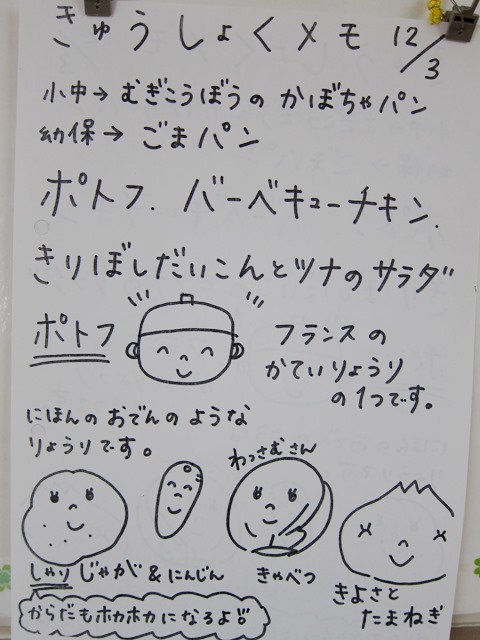 きゅうしょくメモ 12/3
小中→むぎこうぼうのかぼちゃパン
幼保→ごまパン
ポトフ. バーベキューチキン.
きりぼしだいこんとツナのサラダ
ポトフ
フランスの
かていりょうり
の1つです。
にほんのおでんのような
りょうりです。
わっさむさん
しゃりじゃが&にんじん
きゃべつ
きよさと
たまねぎ
からだもホカホカになるよ!!